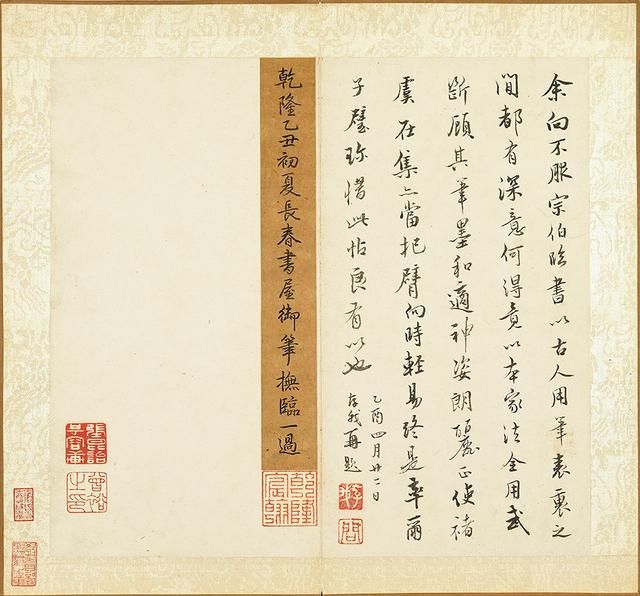 余向不服宗伯臨書以古人用筆表裏之
間都有深意何得竟以本家法全用武
斷顧其筆墨和適神姿朗麗正使褚
虞在集亦當把臂向時輕易終是率爾
子璧珍惜此帖良有以也
乙酉四月廿二日
存我再題
乾隆乙丑初夏長春書屋御筆撫臨一過
乾隆宸翰